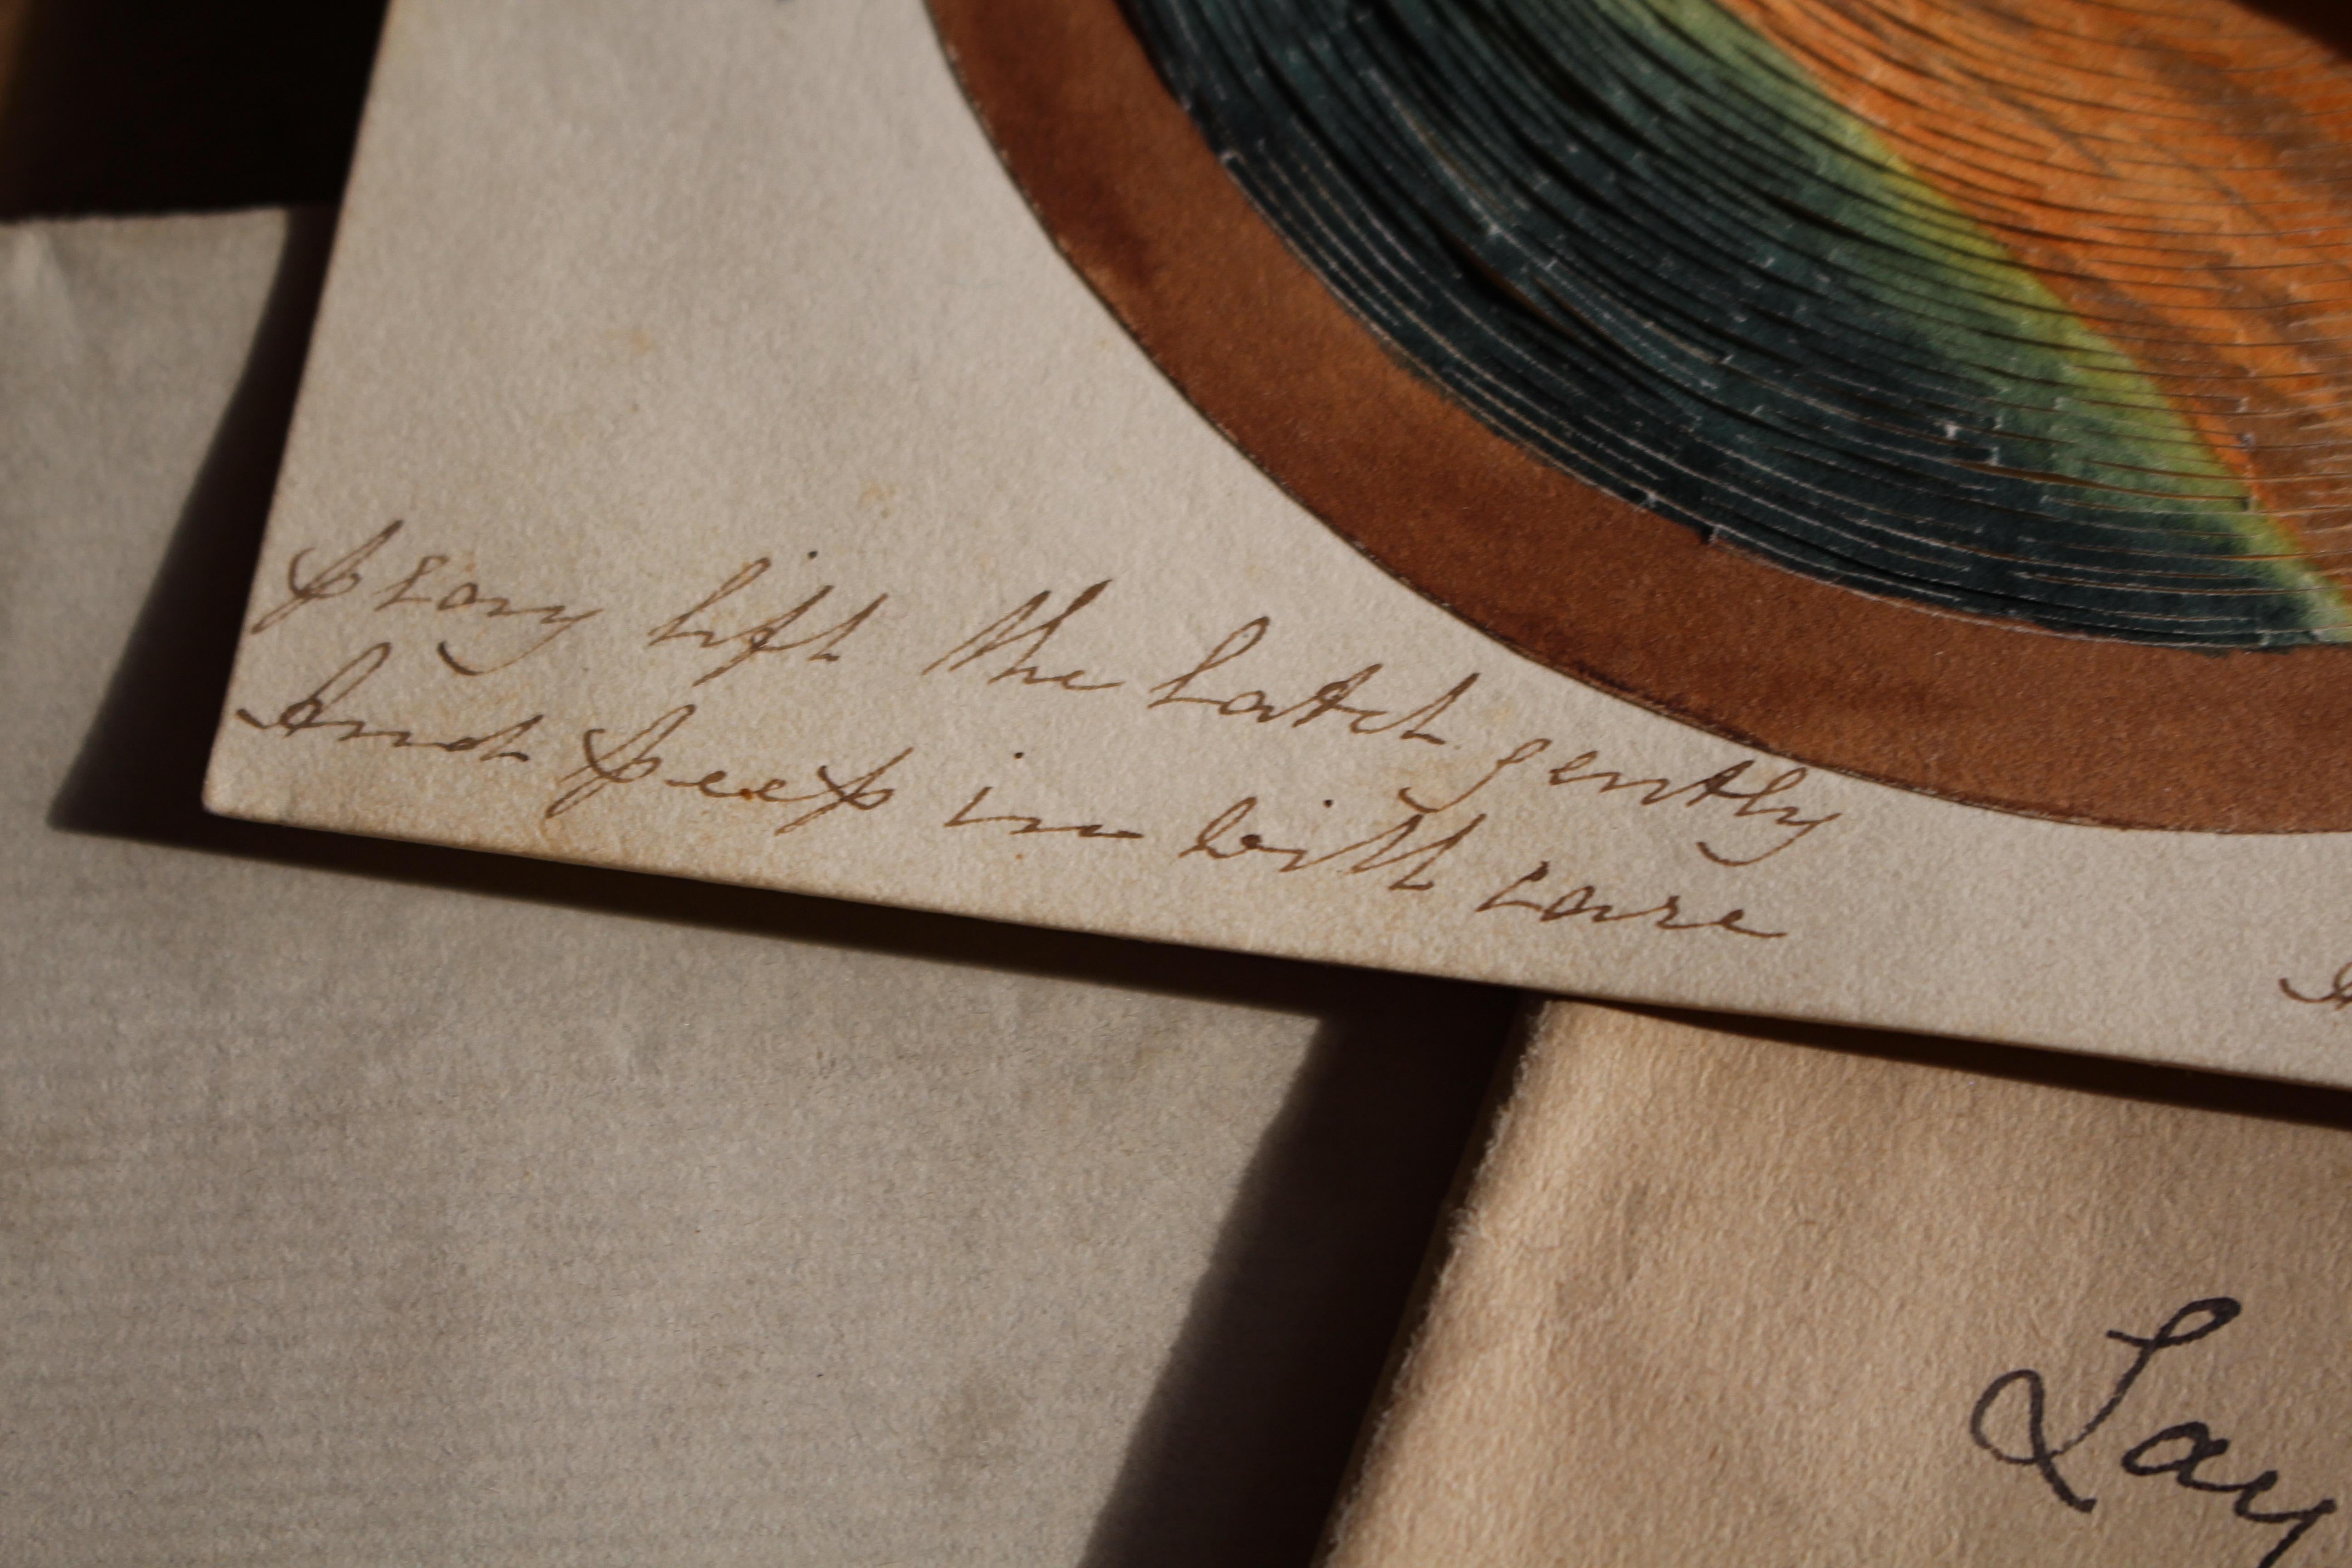 pray lift the latch gently
And peep in with care
Lay